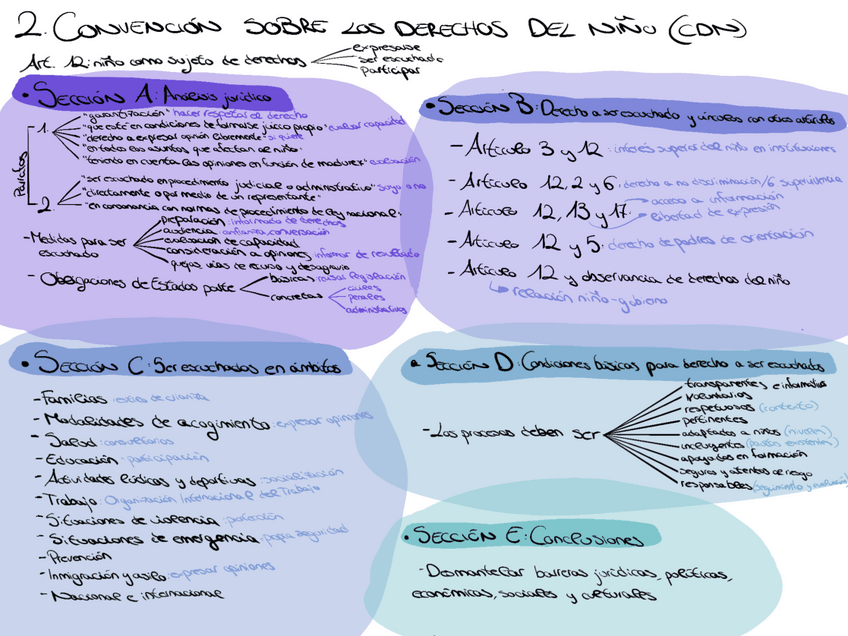 2. CONVENCIÓN SOBRE LOS DERECHOS DEL NIÑO (CDN)
Art. 12: niño como sujeto de derechos
expresarse
ser escuchado
participar
• SECCIÓN A: Análisis jurídico
Párrafos
1
"garantización" hacer respetar el derecho
"que esté en condiciones de formarse juicio propio" evaluar capacidad
"derecho a expresar opinión libremente" si quiere
"en todos los asuntos que afectan al niño"
"teniendo en cuenta las opiniones en función de madurez" evaluación
2
"ser escuchado en procedimiento judicial o administrativo" suyo o no
"directamente o por medio de un representante"
"en consonancia con normas de procedimiento de ley nacional"
- Medidas para ser escuchado
preparación: informado de derechos
audiencia: confianza, conversación
evaluación de capacidad
consideración a opiniones: informar de resultado
quejas, vías de recurso y desagravio
- Obligaciones de Estados parte
básicas: revisar legislación
concretas
civiles
penales
administrativos
• SECCIÓN B: Derecho a ser escuchado y vínculos con otros artículos
- Artículo 3 y 12: interés superior del niño en instituciones
- Artículo 12, 2 y 6: derecho a no discriminación/6 supervivencia
- Artículo 12, 13 y 17:
acceso a información
libertad de expresión
- Artículo 12 y 5: derecho de padres de orientación
- Artículo 12 y observancia de derechos del niño
relación niño-gobierno
• SECCIÓN C: Ser escuchados en ámbitos
- Familias: estilos de crianza
- Modalidades de acogimiento: expresar opiniones
- Salud: consultorios
- Educación: participación
- Actividades lúdicas y deportivas: sociabilización
- Trabajo: Organización Internacional del Trabajo
- Situaciones de violencia: protección
- Situaciones de emergencia: propia seguridad
- Prevención
- Inmigración y asilo: expresar opiniones
- Nacional e internacional
• SECCIÓN D: Condiciones básicas para derecho a ser escuchados
- Los procesos deben ser
transparentes e informativos
voluntarios
respetuosos (contexto)
pertinentes
adaptados a niños (niveles)
incluyentes
apoyados en formación
seguros y atentos al riesgo
responsables
• SECCIÓN E: Conclusiones
- Desmantelar barreras jurídicas, políticas,
económicas, sociales y culturales